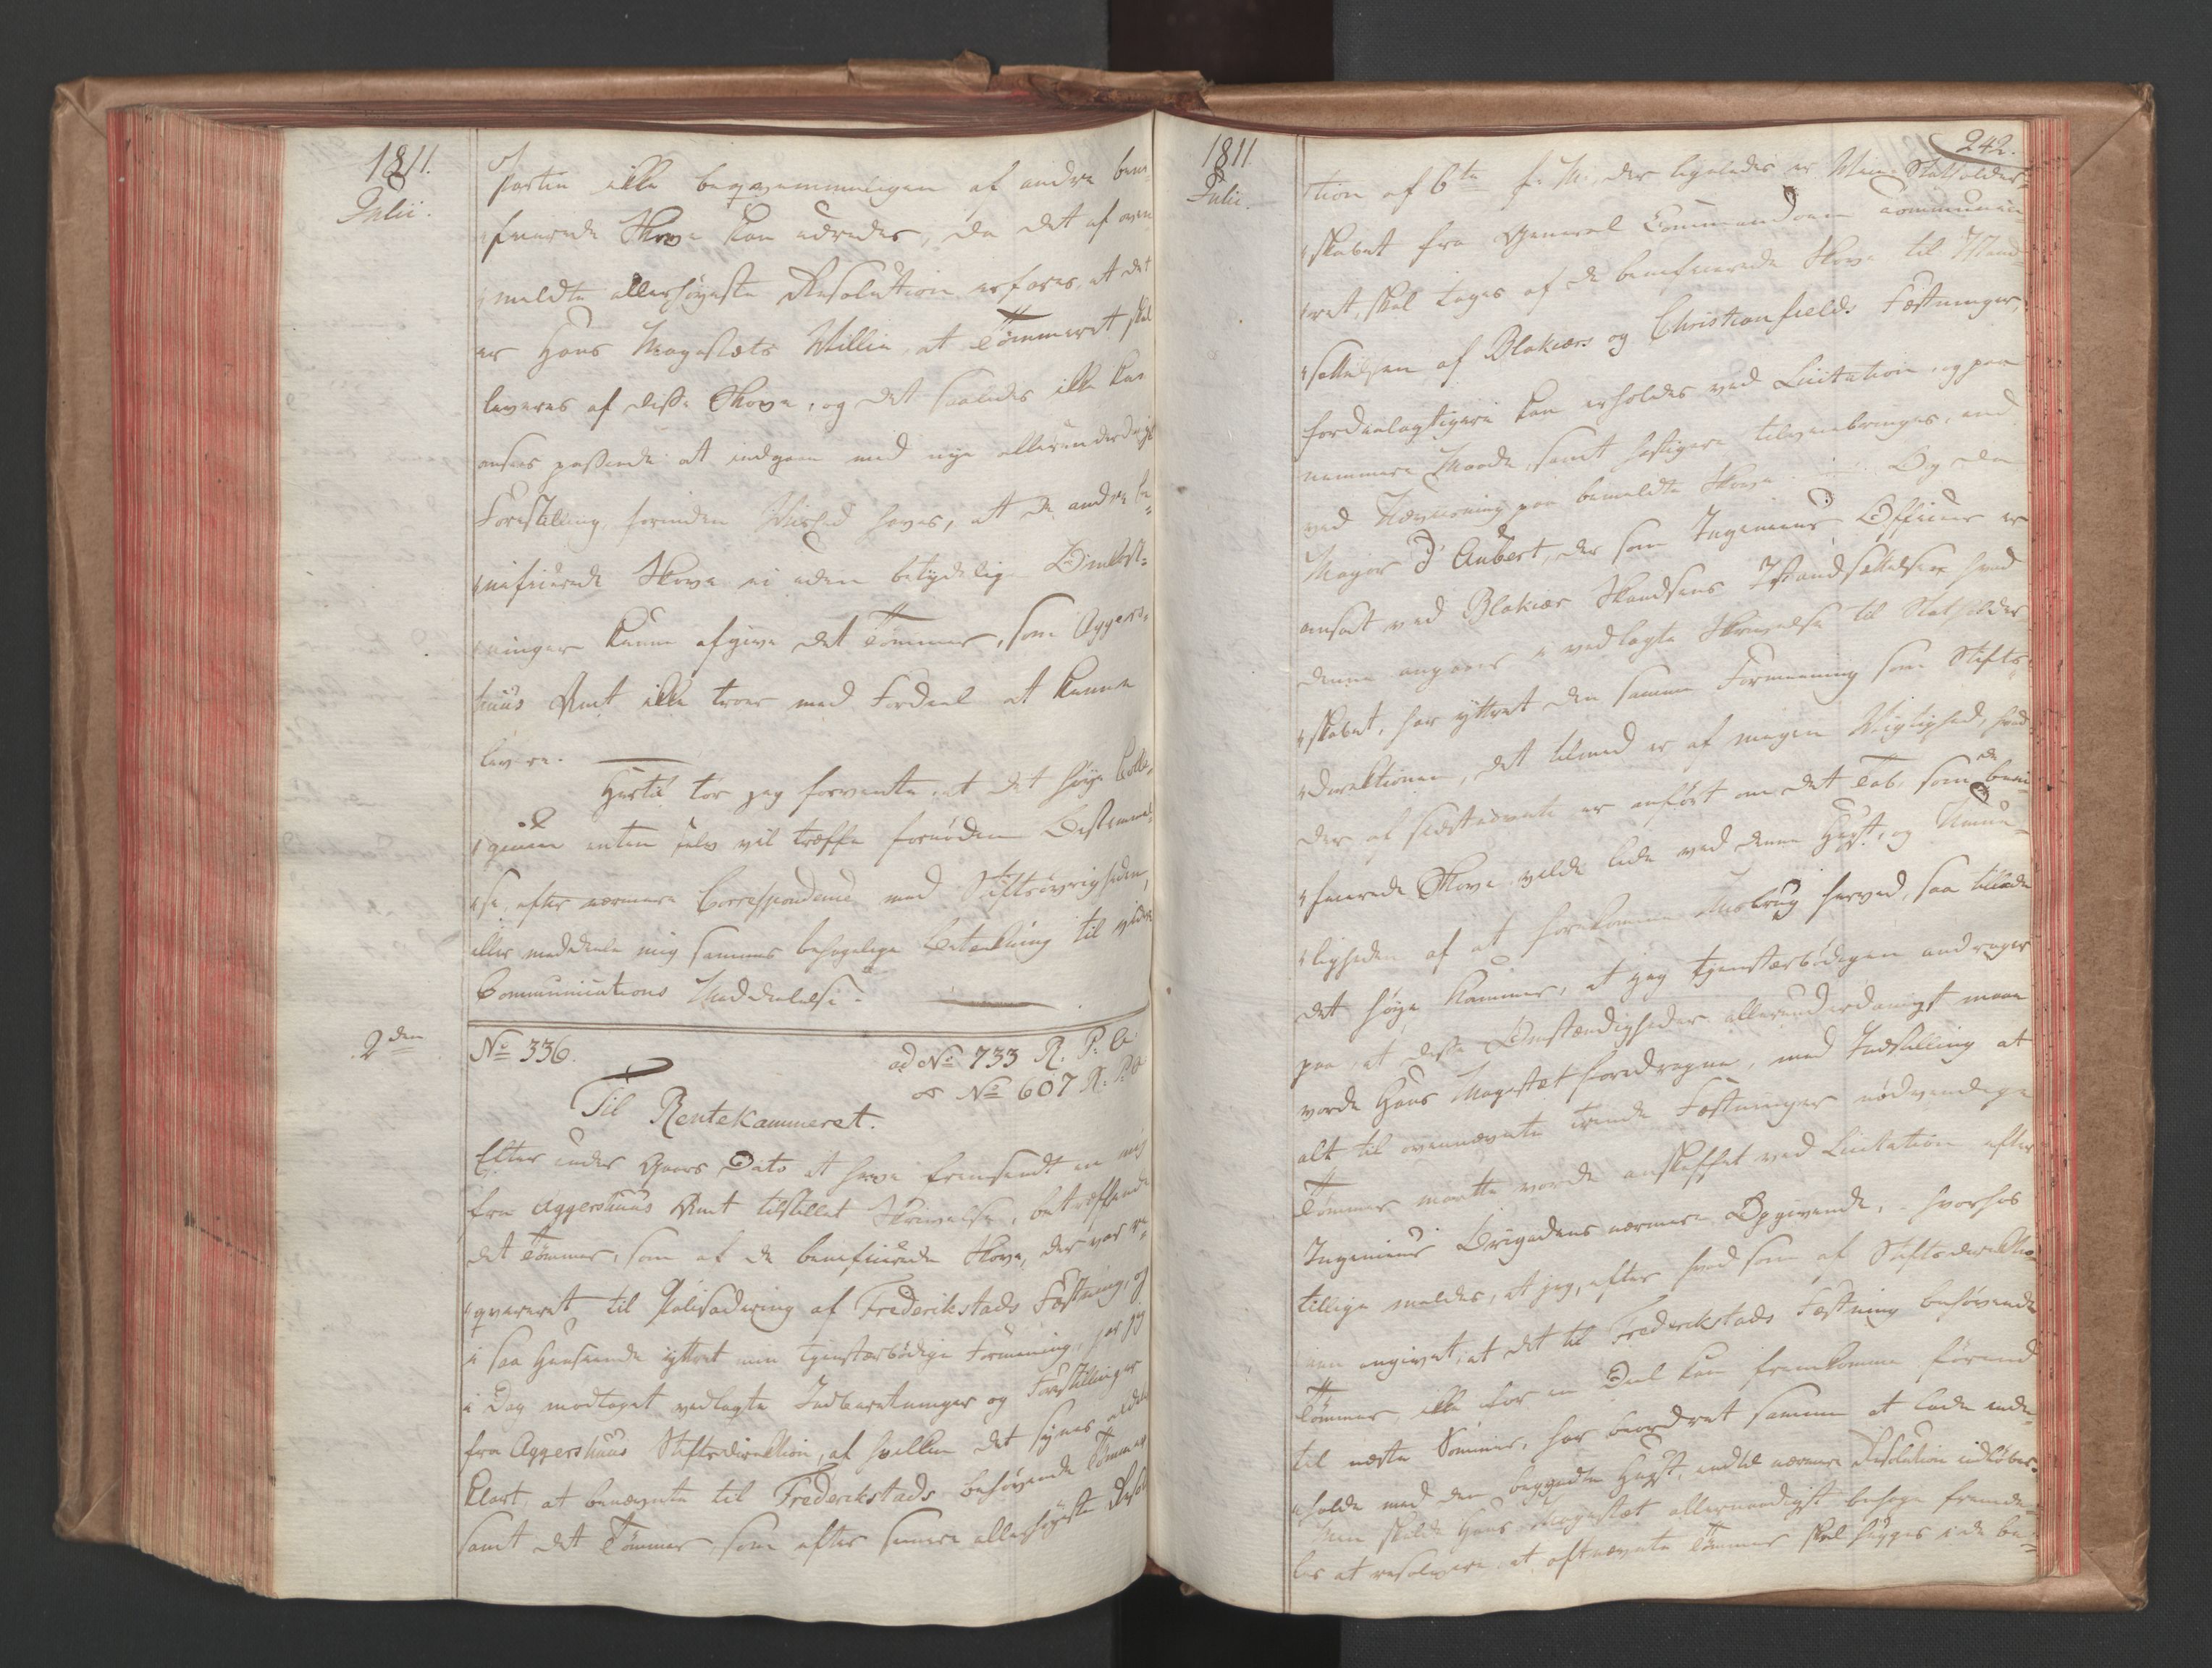 1811.
Julii.
Parten ikke beqvemmeligen af andre bene-
ficerede Skove kan udredes, da det af oven-
meldte allerhøyeste Resolution erfares, at det
er Hans Majestæts Willie, at Tømmeret skal
leveres af disse Skove, og det saaledes ikke kan
ansees passende at indgaae med nye allerunderdanigst
Forestilling, forinden Wished haves, at de andre be-
neficerede Skove ei uden betydelig Omkost-
ninger kunne afgive det Tømmer, som Aggers-
huus Amt ikke troer med Fordeel at kunne
levere.
Hertil tør jeg forvente, at det høye Colle-
gium enten selv vil træffe fornøden Bestemmel-
se, efter nærmere Correspondence med Stiftsøvrigheden,
eller meddeele mig sammes behagelige Betænkning til videre
Communications Meddeelelse.
2den
No 336.
ad No 733 R. P. C.
& No 607 R. P. C.
Til Rentekammeret.
Efter under Gaars Dato at have fremsendt en mig
fra Aggershuus Amt tilstillet Skrivelse, betræffende
det Tømmer, som af de beneficerede Skove, der var re-
qvireret til Palisadering af Frederikstads Fæstning, og
i saa Henseende yttret min tjenstærbødige Formening, har jeg
i Dag modtaget vedlagte Indberetninger og Forestillinger
fra Aggershuus Stiftsdirektion, af hvilken det synes aldeles
klart, at benævnte til Frederikstads behøvende Tømmer
samt det Tømmer, som efter senere allerhøyeste Resolu-
1811
Julii.
242.
tion af 6te f. M., der ligeledes er Vice-Statholder-
skabet fra General Commandoen communice-
ret, skal tages af de beneficerede Skove til Istand-
sættelsen af Blakiers og Christiansfields Fæstninger,
fordeelagtigere kan erholdes ved Licitation, og paa
nemmere Maade, samt hastigere tilveiebringes, end
ved Udviisning paa bemeldte Skove. Og da
Mayor d'Aubert, der som Ingenieur Officier er
ansat ved Blakier Skandsens Istandsættelse, hvad
denne angaaer i vedlagte Skrivelse til Statholder-
skabet, har yttret den samme Formeening som Stifts-
direktionen, det tilmed er af megen Wigtighed, hvad
der af sidstnævnte er anført om det Tab, som de bene-
ficerede Skove vilde lide ved denne Hugst, og Umue-
ligheden af at forekomme Misbrug herved, saa tillade
det høye Kammer, at jeg tjenstærbødigen andrager
paa, at disse Omstændigheder allerunderdanigst maae
vorde Hans Majestæt foredragne, med Indstilling at
alt til ovennævnte trende Fæstninger nødvendige
Tømmer maatte vorde anskaffet ved Licitation efter
Ingenieur Brigadens nærmere Opgivende, hvorhos
tillige meldes, at jeg, efter hvad som af Stiftsdirektio-
nen angivet, at det til Frederikstads Fæstning behøvende
Tømmer, ikke for en Deel kan fremkomme førend
til næste Sommer, har beordret samme at lade inde-
holde med den begyndte Hugst, indtil nærmere Resolution indløber.
Men skulde Hans Majestæt allernaadigst behage fremde-
les at resolvere, at oftnævnte Tømmer skal hugges i de be-